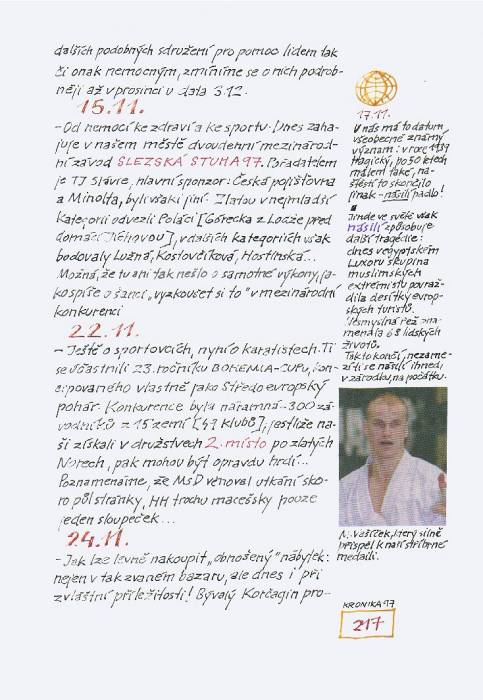 dalších podobných sdružení pro pomoc lidem tak
či onak nemocným, zmíníme se o nich podrob-
něji až v prosinci u data 3.12.
15.11.
- Od nemocí ke zdraví a ke sportu. Dnes zaha-
juje v našem městě dvoudenní mezinárod-
ní závod SLEZSKÁ STUHA 97. Pořadatelem
je TJ Slávie, hlavní sponzor: Česká pojišťovna
a Minolta, byli však i jiní. Zlatou v nejmladší
kategorii odvezli Poláci [Górecka z Lodže před
domácí Jichovou], v dalších kategoriích však
bodovaly Lužná, Kostovčíková, Hostinská...
Možná, že tu ani tak nešlo o samotné výkony, ja-
ko spíše o šanci „vyzkoušet si to" v mezinárodní
konkurenci
22.11.
- Ještě o sportovcích, nyní o karatistech. Ti
se účastnili 23. ročníku BOHEMIA-CUPu, kon-
cipovaného vlastně jako Středoevropský
pohár. Konkurence byla náramná - 300 zá-
vodníků z 15 zemí [49 klubů], jestliže na-
ši získali v družstvech 2. místo po zlatých
Norech, pak mohou být opravdu hrdí...
Poznamenáme, že MsD věnoval utkání sko-
ro půl stránky, HH trochu macešsky pouze
jeden sloupeček...
24.11.
- Jak lze levně nakoupit „obnošený" nábytek:
nejen v tak zvaném bazaru, ale dnes i při
zvláštní příležitosti! Bývalý Korčagin pro-
17.11.
U nás má to datum
všeobecně známý
význam: v roce 1939
tragický, po 50 letech
málem také, na-
štěstí to skončilo
jinak - násilí padlo!
Jinde ve světě však
násilí způsobuje
další tragédie:
dnes v egyptském
Luxoru skupina
muslimských
extremistů povraž-
dila desítky evrop-
ských turistů.
Nesmyslná řež zna-
menala 68 lidských
životů.
Tak to končí, nezame-
zí-li se násilí ihned,
v zárodku, na počátku.
N. Vašíček, který silně
přispěl k naší stříbrné
medaili.
KRONIKA 97
217